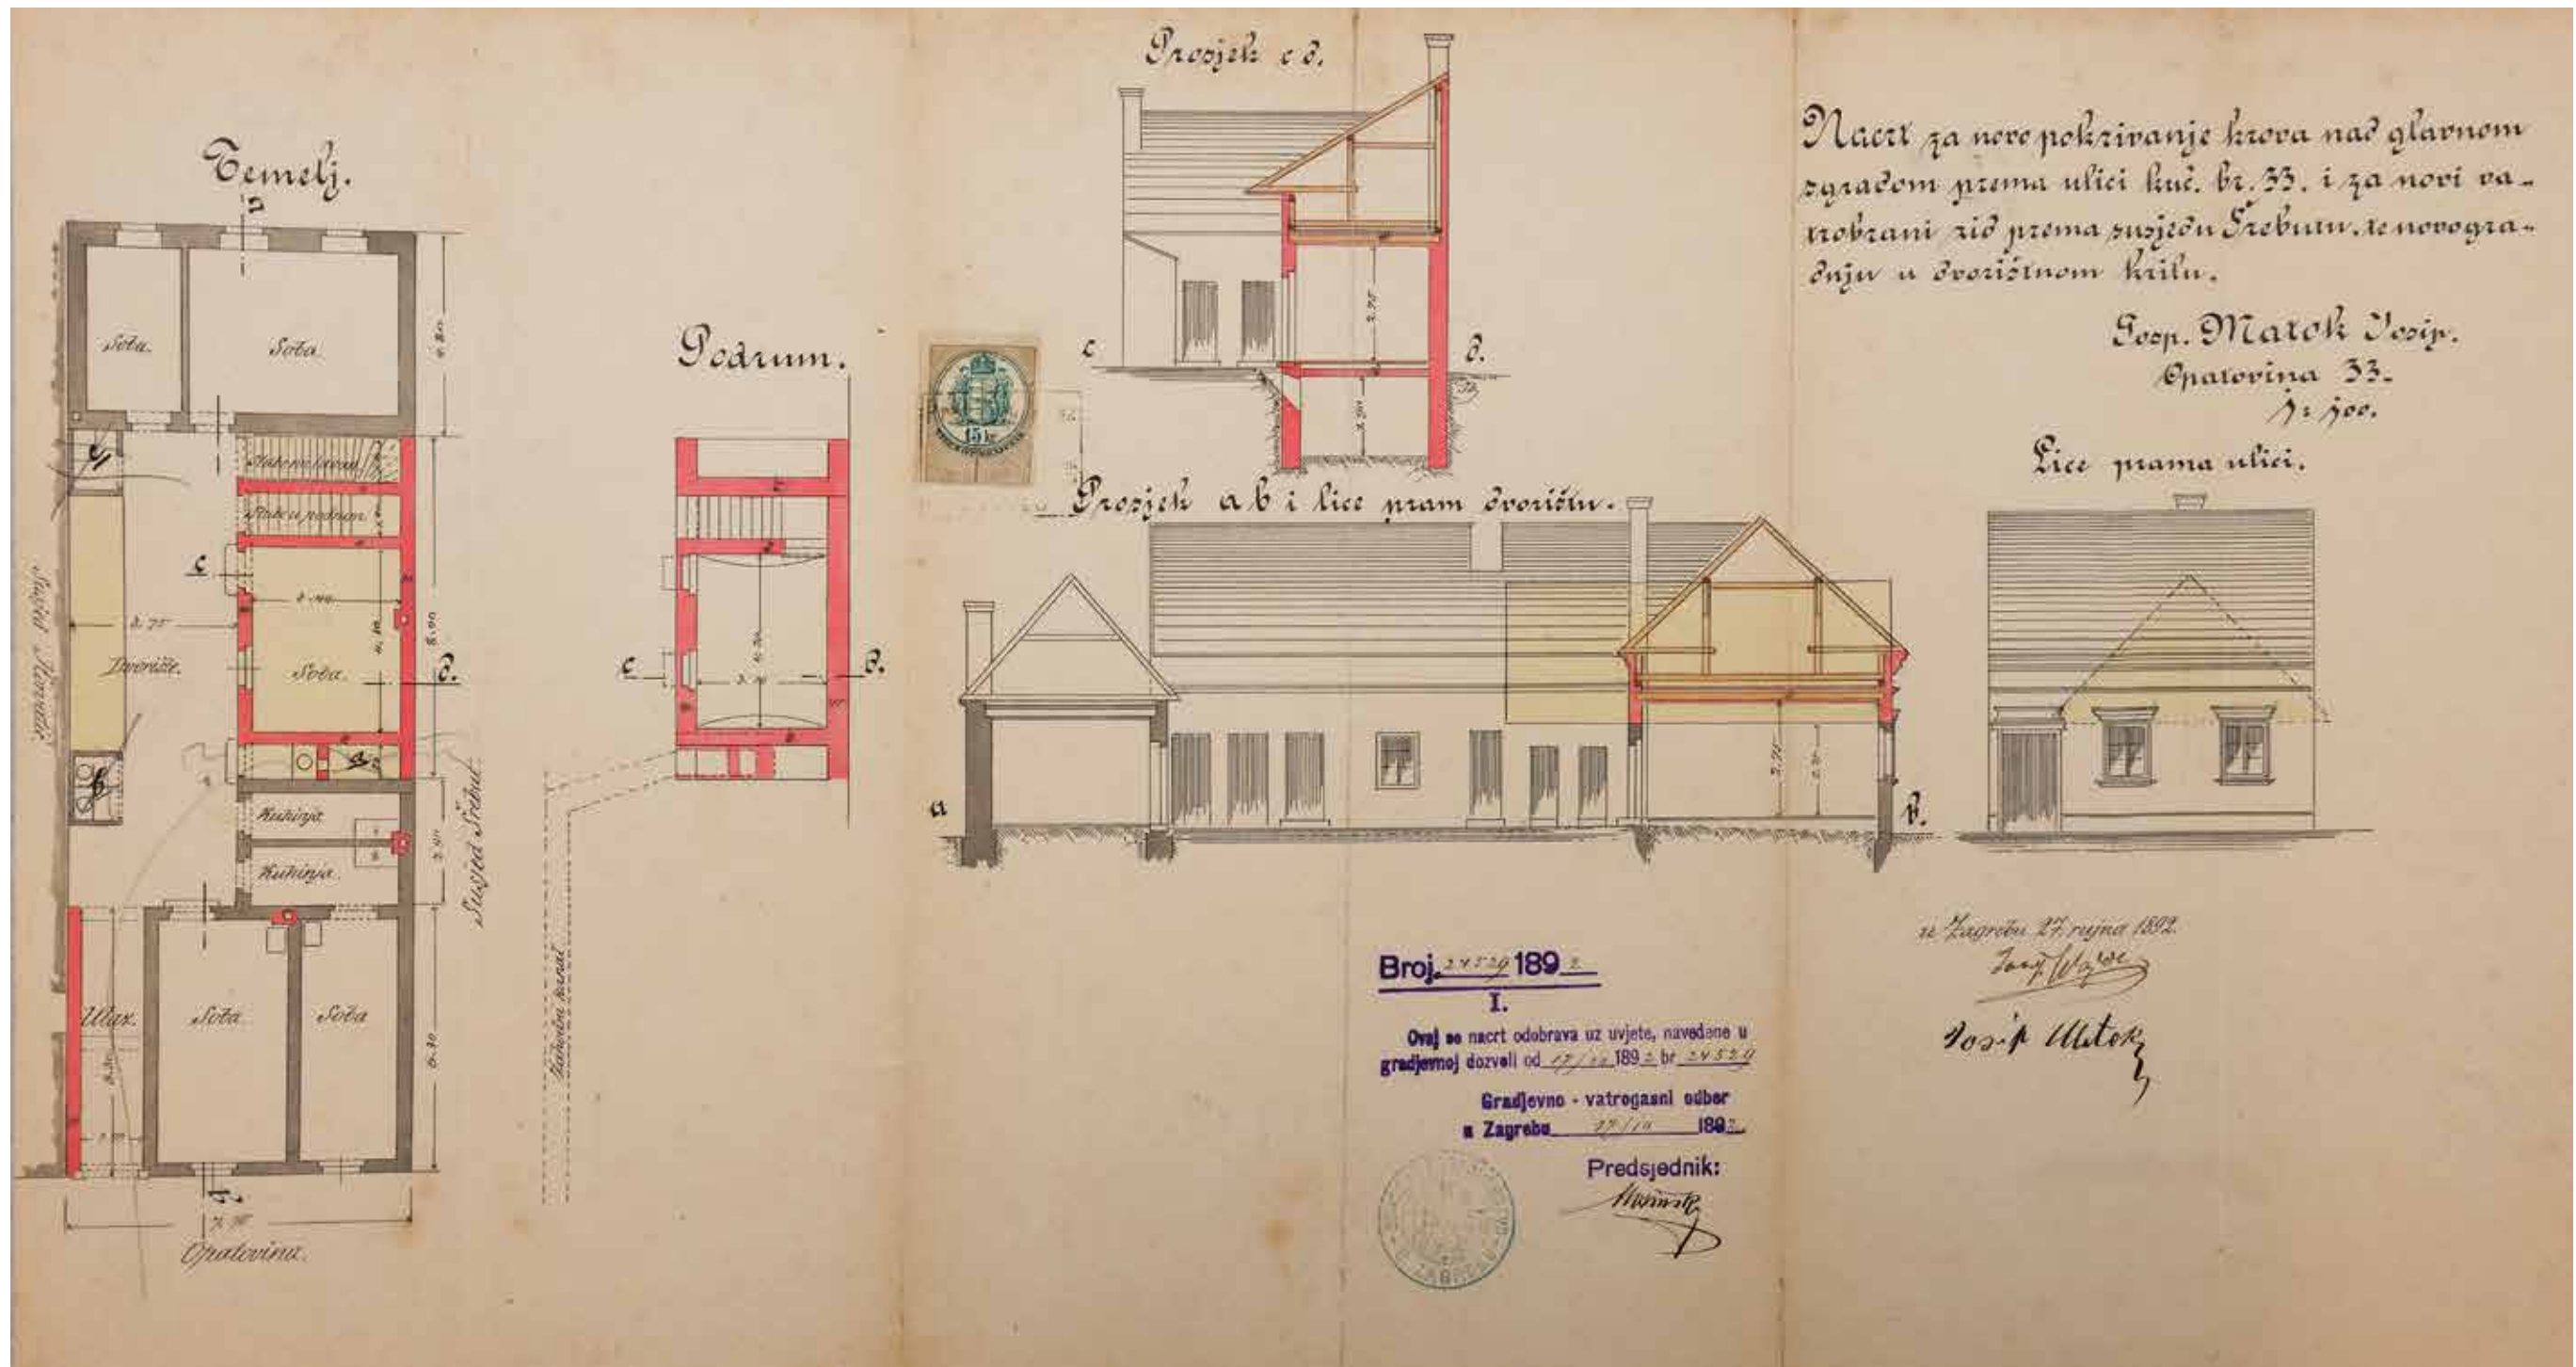 Temelj.
Soba.
Soba.
Stube u podrum
Dvorište.
3.75
Soba.
8.00
Kuhinja
Kuhinja.
Ulaz.
Soba
Soba
Opatovina.
Susjed Šrebut.
Podrum.
c
d.
Prosjek c d.
c
d.
2.75
15 kr
Prosjek a b i lice pram dvorištu.
a
b.
2.75
Nacrt za novo pokrivanje krova nad glavnom
zgradom prema ulici kuć. br. 33. i za novi va-
trobrani zid prema susjedu Šrebutu, te novogra-
dnju u dvorištnom krilu.
Gosp. Matok Josip.
Opatovina 33.
1:100.
Lice prama ulici.
u Zagrebu 27. rujna 1892.
Josip Matok
Broj 24529 1892
I.
Ovaj se nacrt odobrava uz uvjete, navedene u
gradjevnoj dozvoli od 1892 br 24529
Gradjevno - vatrogasni odbor
u Zagrebu 17/10 1892
Predsjednik:
ZAGREBU